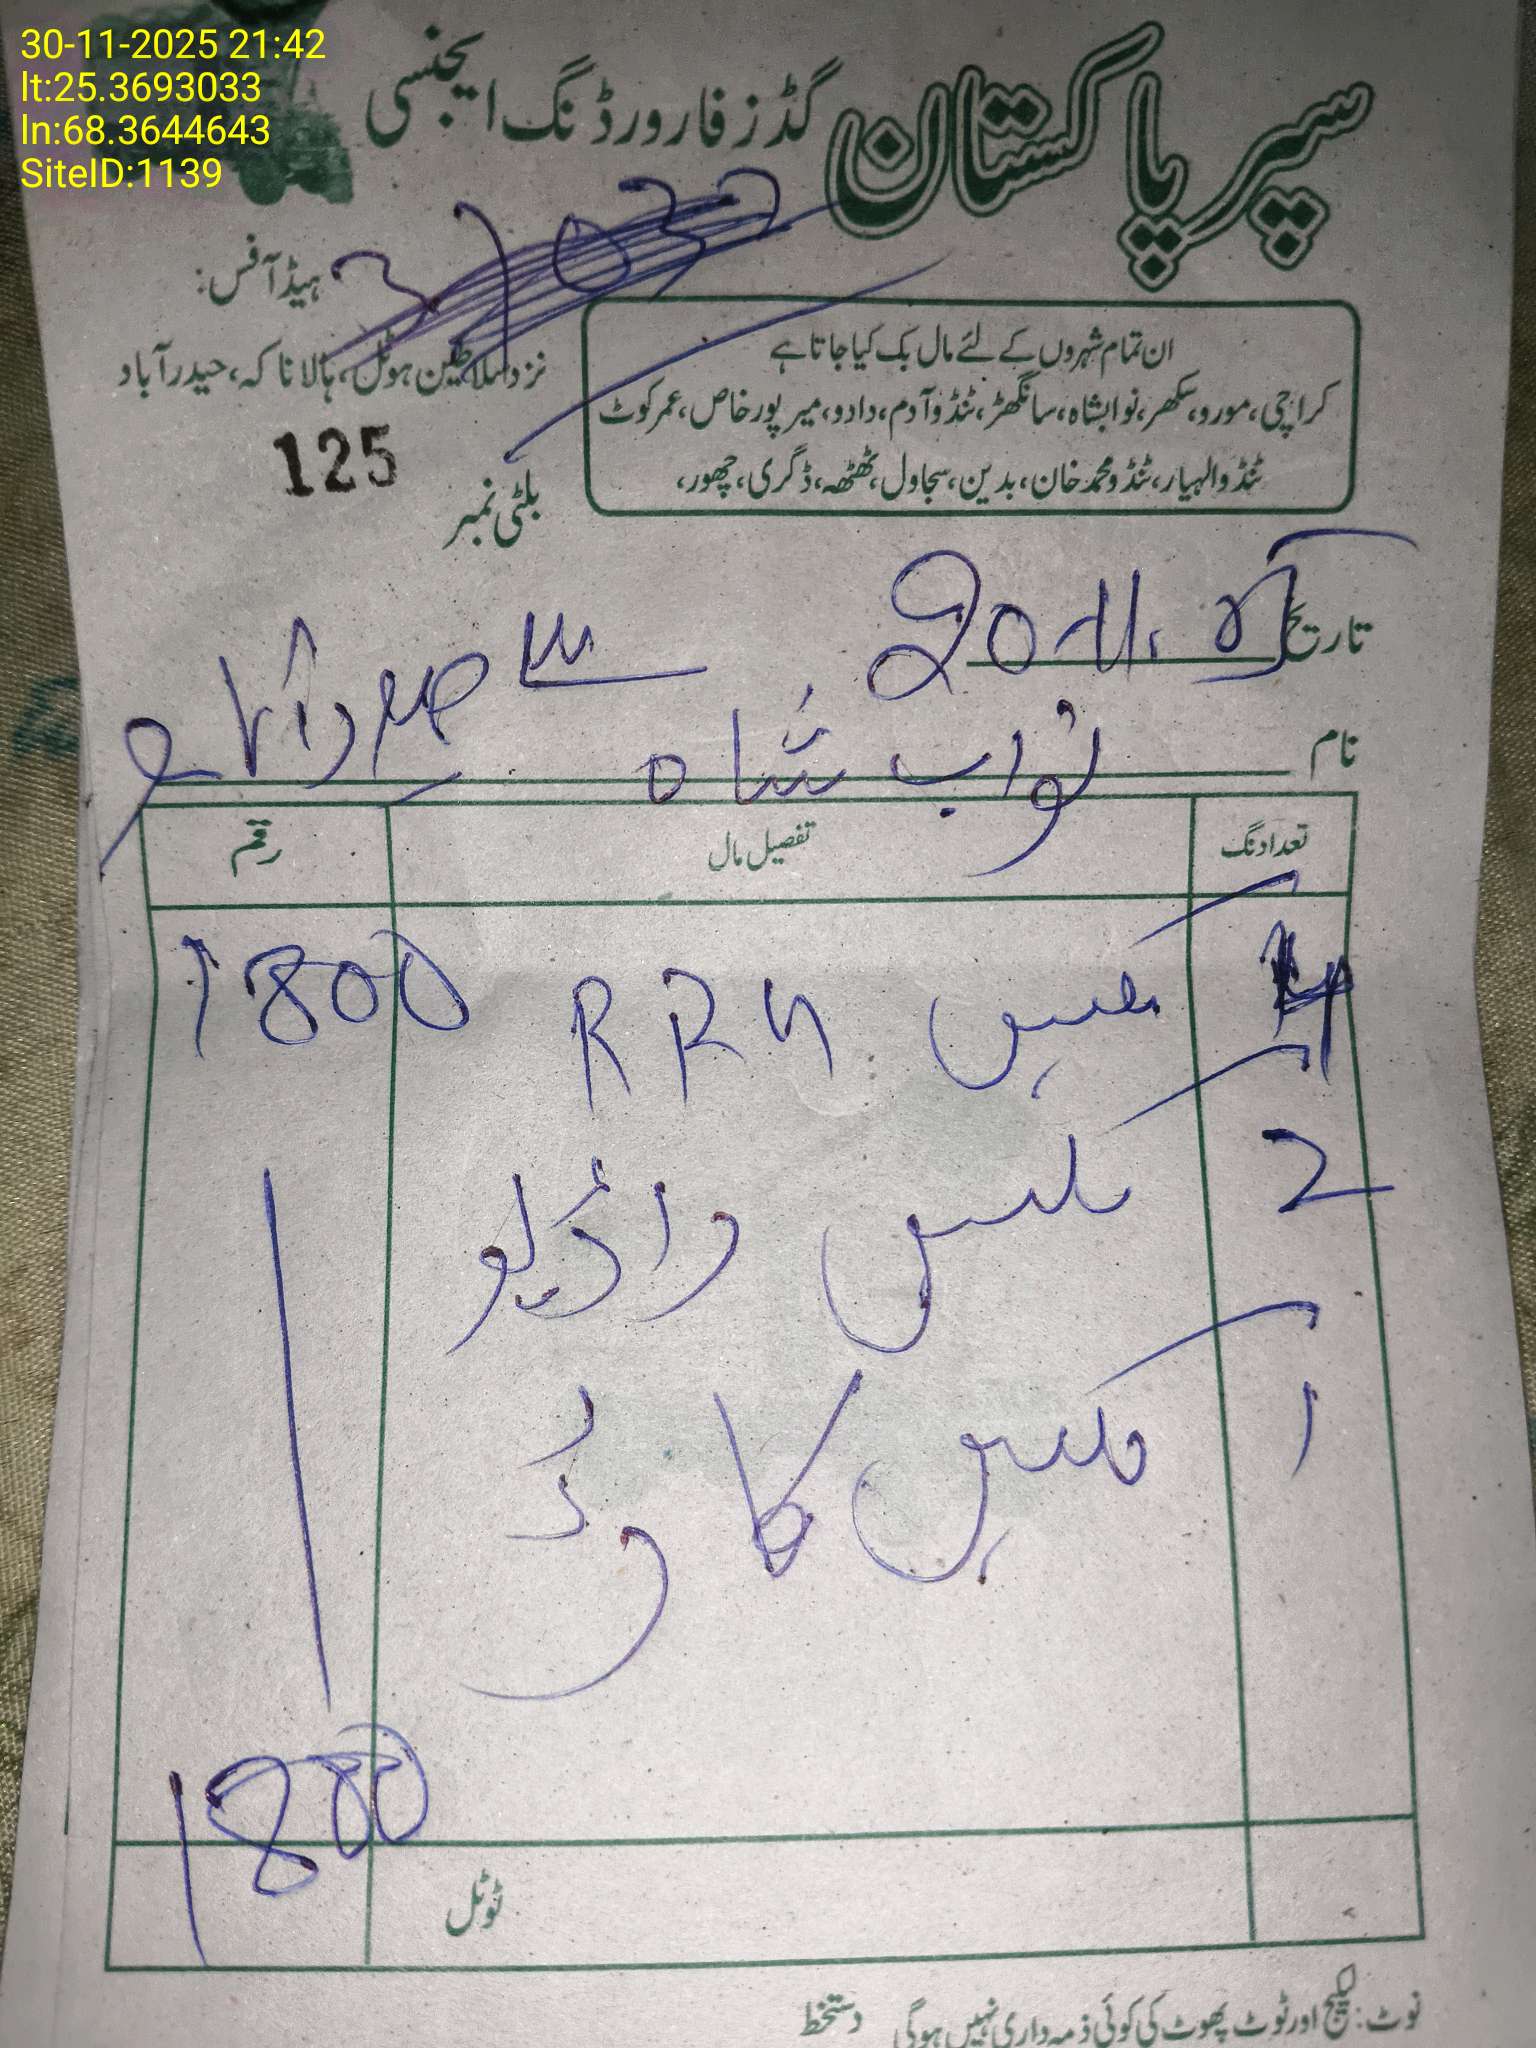 30-11-2025 21:42
lt:25.3693033
ln:68.3644643
SiteID:1139
سپر پاکستان گڈز فارورڈنگ ایجنسی
ہیڈ آفس:
نزد سلاطین ہوٹل، ہالا ناکہ، حیدرآباد
ان تمام شہروں کے لئے مال بک کیا جاتا ہے
کراچی، مورو، سکھر، نوابشاہ، سانگھڑ، ٹنڈوآدم، دادو، میرپورخاص، عمرکوٹ
ٹنڈوالہیار، ٹنڈومحمدخان، بدین، سجاول، ٹھٹھہ، ڈگری، چھور،
بلٹی نمبر 125
تاریخ
نام نواب شاہ سے حیدرآباد
تعداد نگ تفصیل مال رقم
4 کیس RRU 1800
2 کیس
1 کیس
ٹوٹل 1800
نوٹ: لیکیج اور ٹوٹ پھوٹ کی کوئی ذمہ داری نہیں ہوگی دستخط